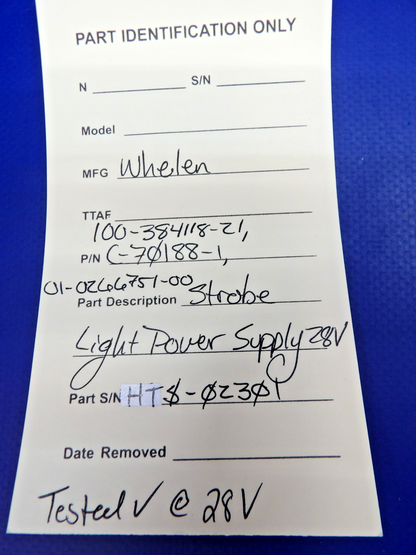 PART IDENTIFICATION ONLY
N ________ S/N ________
Model ________
MFG Whelen
TTAF ________
100-384118-21,
P/N C-70188-1,
01-0266751-00
Part Description Strobe
Light Power Supply 28V
Part S/N HTS-02301
Date Removed ________
Tested √ @ 28V